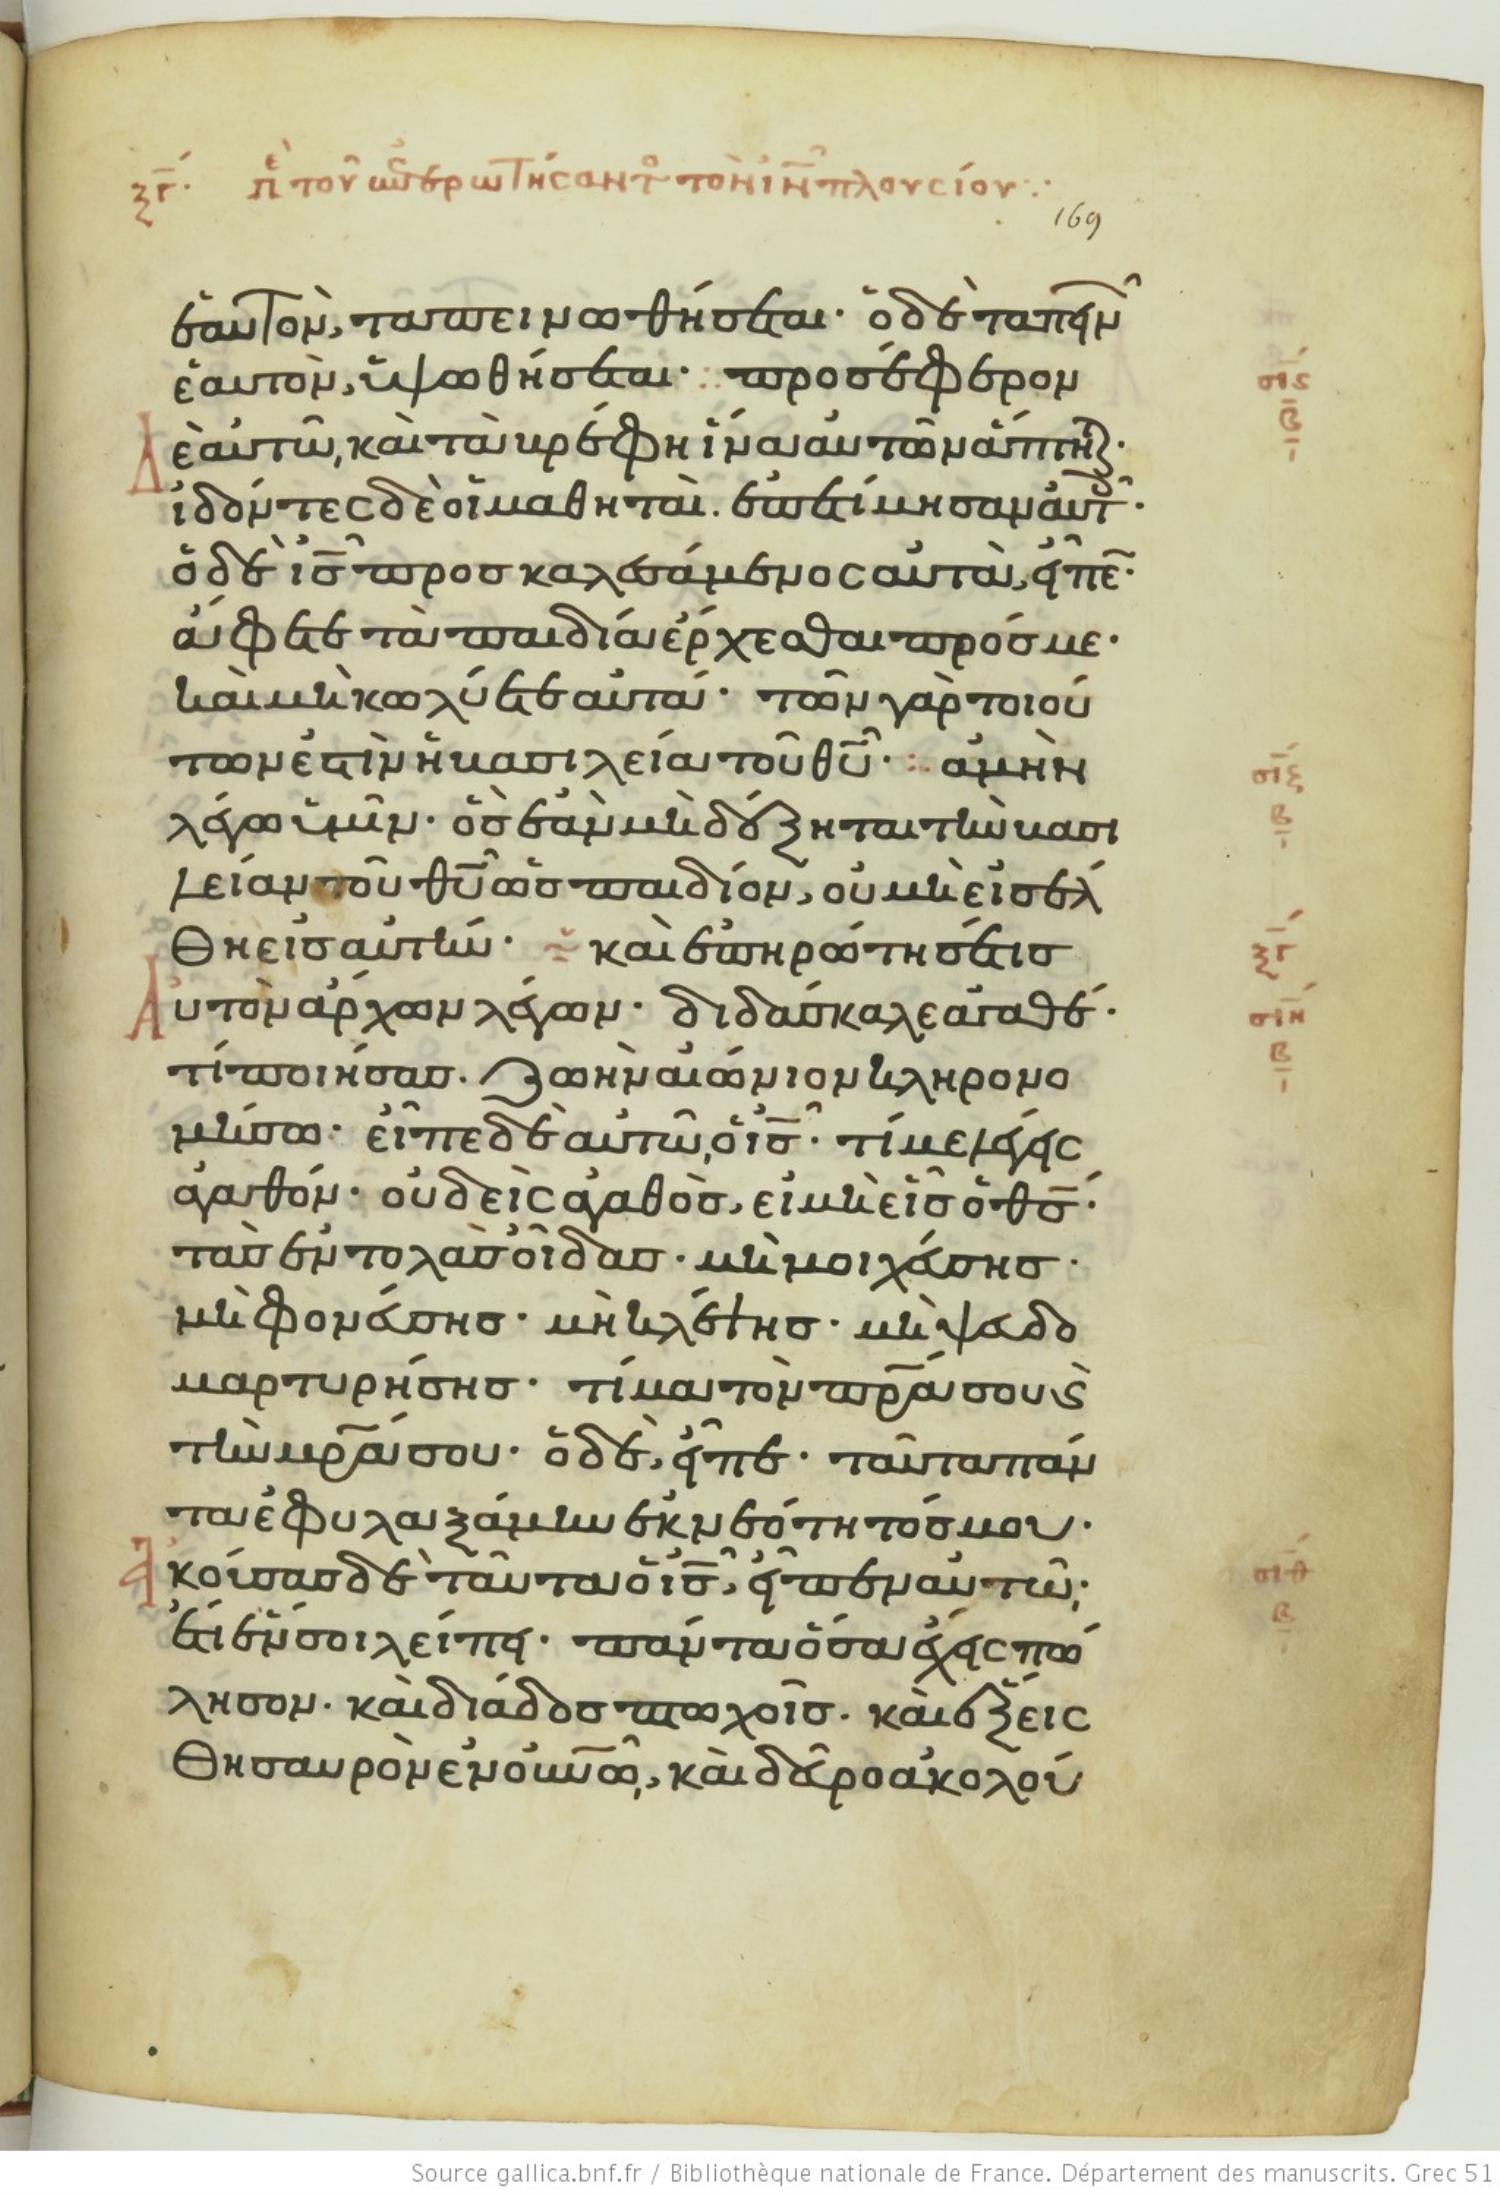 ξγ. πε τοῦ ἐπερωτήσαντ τὸν ιν πλουσίου
169
ἑαυτὸν, ταπεινωθήσεται· ὁ δὲ ταπεινῶν
ἑαυτὸν, ὑψωθήσεται· προσέφερον
δὲ αὐτῶ, καὶ τὰ βρέφη ἵνα αὐτῶν ἅπτηται·
ἰδόντες δὲ οἱ μαθηταὶ. ἐπετίμησαν αὐτοῖς·
ὁ δὲ ις προσκαλεσάμενος αὐτὰ, εἶπεν·
ἄφετε τὰ παιδία ἔρχεσθαι πρός με·
καὶ μὴ κωλύετε αὐτά· τῶν γὰρ τοιού
των ἐστὶν ἡ βασιλεία τοῦ θυ· ἀμὴν
λέγω ὑμῖν· ὃς ἐὰν μὴ δέξηται τὴν βασι
λείαν τοῦ θυ ὡς παιδίον, οὐ μὴ εἰσέλ
θη εἰς αὐτήν· καὶ ἐπηρώτησέ τις
αὐτὸν ἄρχων λέγων· διδάσκαλε ἀγαθέ·
τί ποιήσας. ζωὴν αἰώνιον κληρονο
μήσω· εἶπε δὲ αὐτῶ, ὁ ις· τί με λέγεις
ἀγαθόν· οὐδεὶς ἀγαθὸς, εἰ μὴ εἷς ὁ θς·
τὰς ἐντολὰς οἶδας· μὴ μοιχεύσης·
μὴ φονεύσης· μὴ κλέψης· μὴ ψευδο
μαρτυρήσης· τίμα τὸν πρα σου ϗ
τὴν μρα σου· ὁ δὲ, εἶπε· ταῦτα πάν
τα ἐφυλαξάμην ἐκ νεότητός μου·
ἀκούσας δὲ ταῦτα ὁ ις, εἶπεν αὐτῶ,
ἔτι ἕν σοι λείπει· πάντα ὅσα ἔχεις πώ
λησον· καὶ διάδος πτωχοῖς· καὶ ἕξεις
θησαυρὸν ἐν οὐνω, καὶ δεῦρο ἀκολού
σις
β
σιζ
β
ξγ
σιη
β
σιθ
β
Source gallica.bnf.fr / Bibliothèque nationale de France. Département des manuscrits. Grec 51